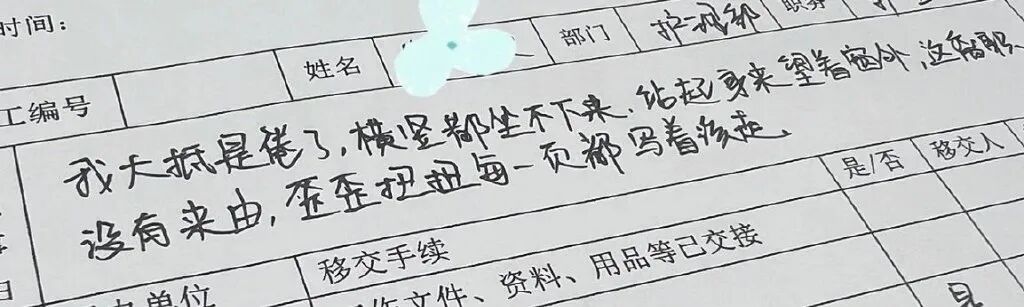 时间：
姓名 部门 护理部 职务
工编号
我大抵是倦了，横竖都坐不下来，站起身来望着窗外，这离职、
没有来由，歪歪扭扭每一页都写着移走、
是/否 移交人
移交手续
单位
作文件、资料、用品等已交接
是